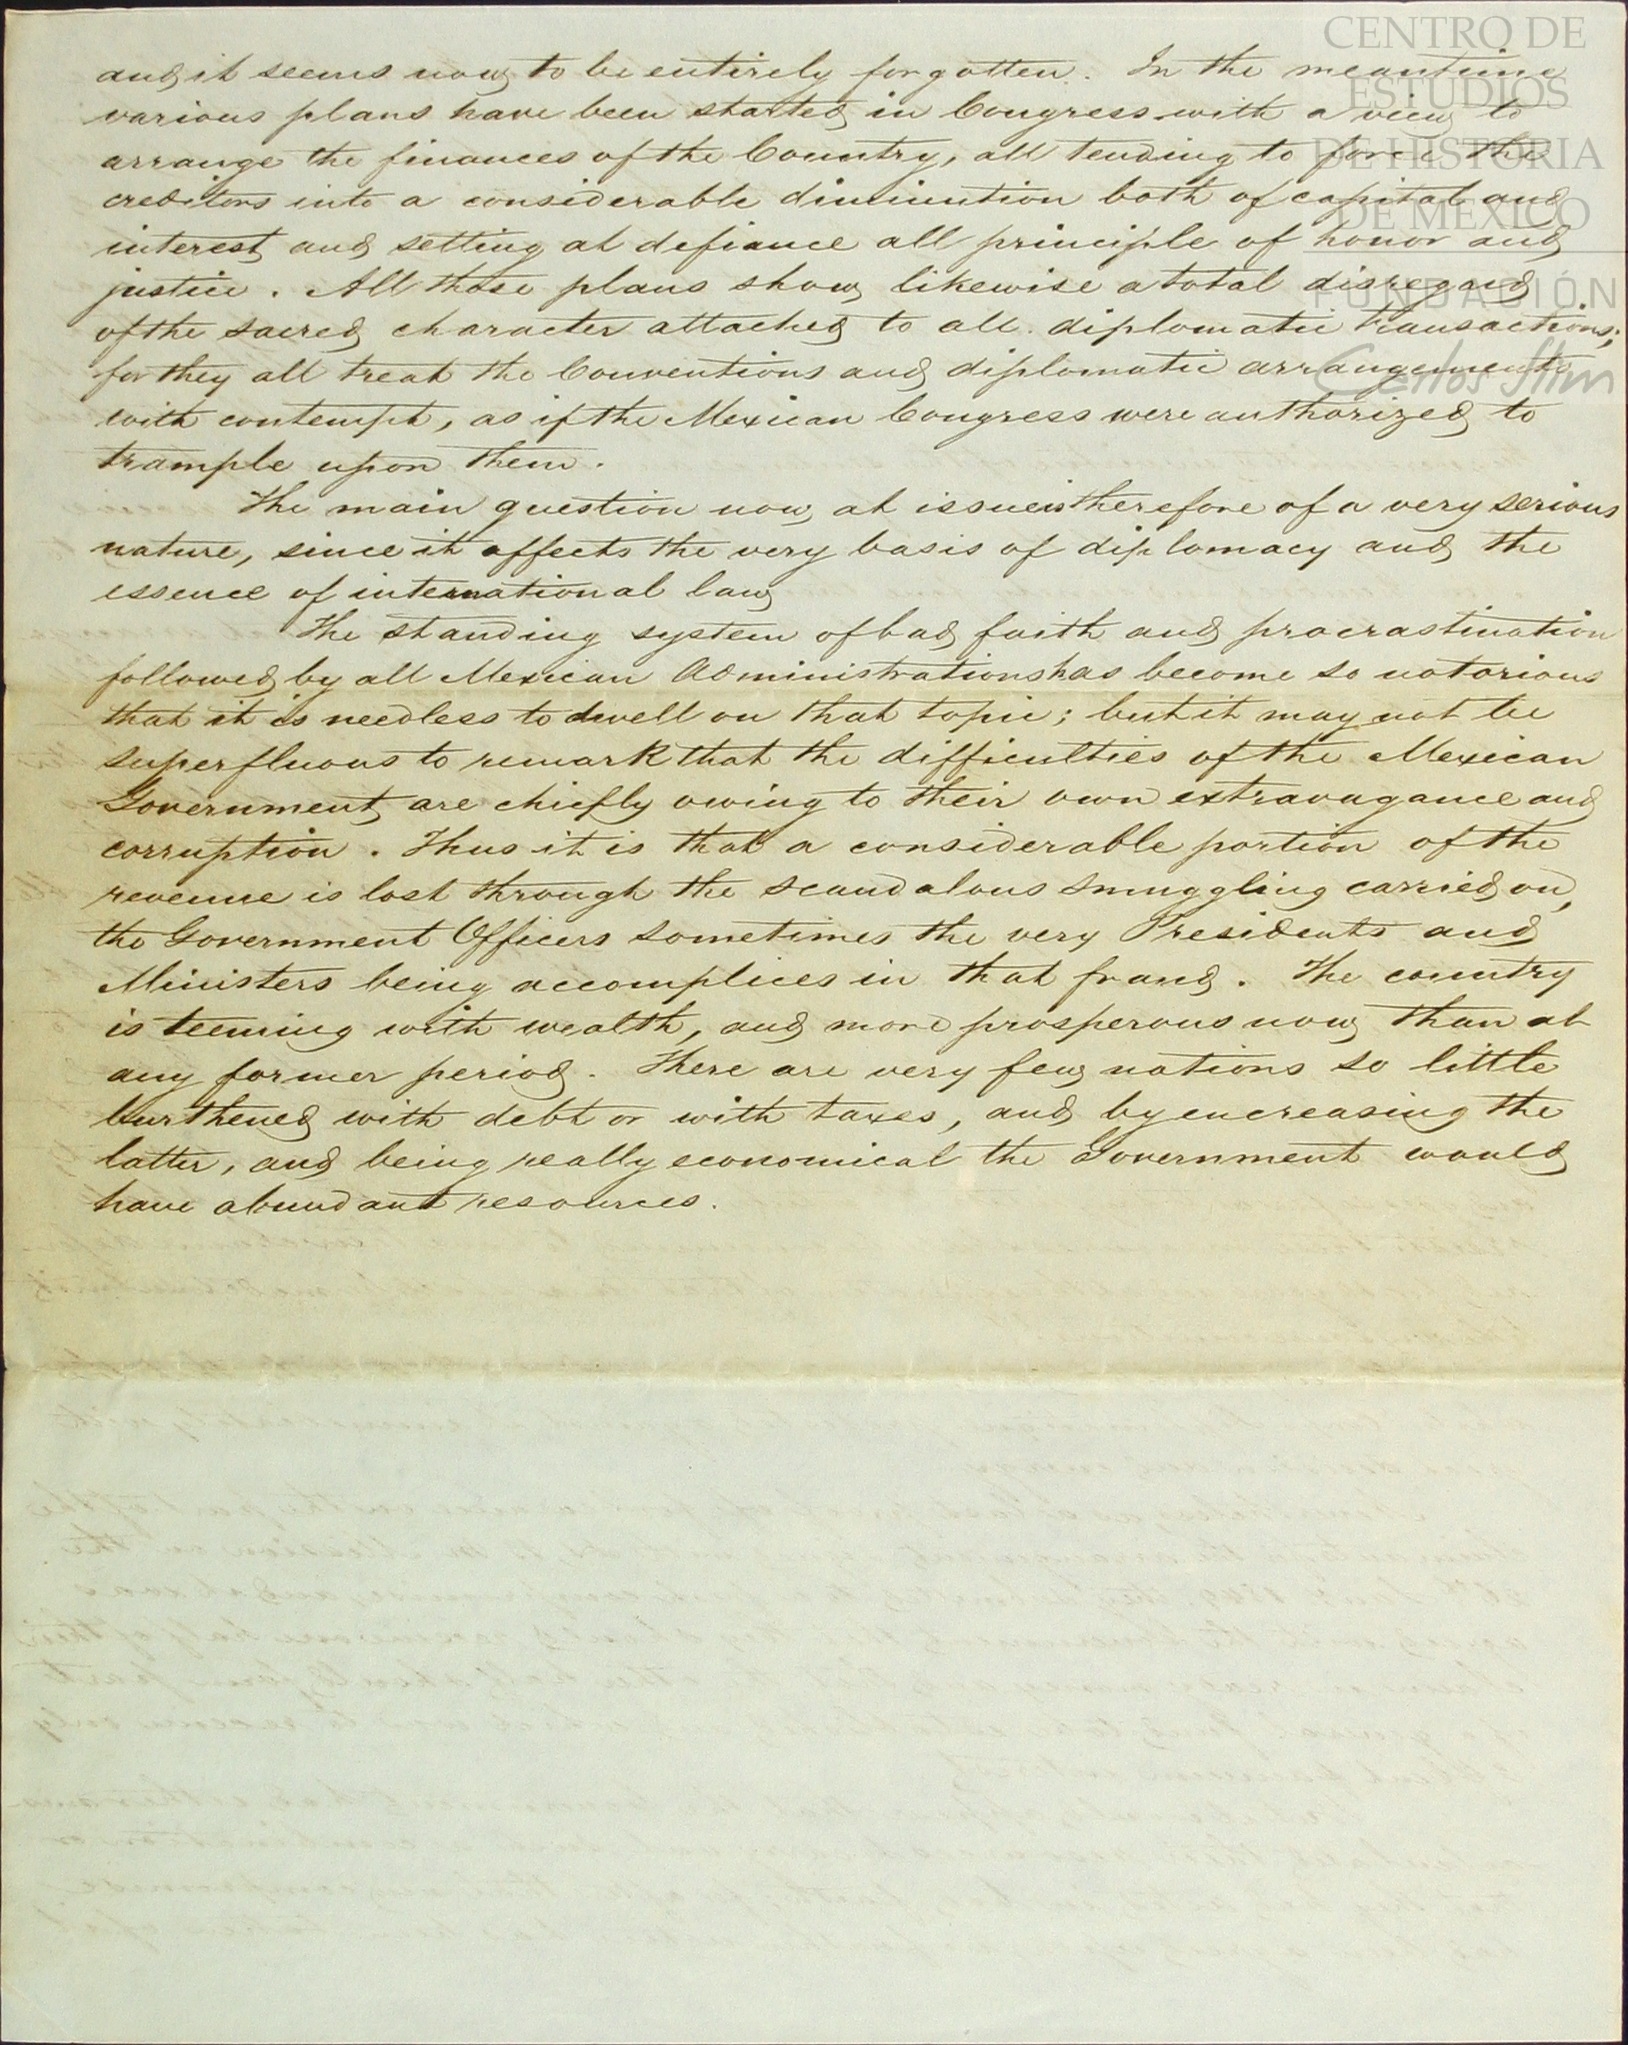 and it seems now to be entirely forgotten. In the meantime
various plans have been started in Congress with a view to
arrange the finances of the Country, all tending to force the
creditors into a considerable diminution both of capital and
interest and setting at defiance all principle of honor and
justice. All those plans show likewise a total disregard
of the sacred character attached to all diplomatic transactions;
for they all treat the Conventions and diplomatic arrangements
with contempt, as if the Mexican Congress were authorized to
trample upon them.
The main question now at issue is therefore of a very serious
nature, since it affects the very basis of diplomacy and the
essence of international law
The standing system of bad faith and procrastination
followed by all Mexican Administrations has become so notorious
that it is needless to dwell on that topic; but it may not be
superfluous to remark that the difficulties of the Mexican
Government are chiefly owing to their own extravagance and
corruption. Thus it is that a considerable portion of the
revenue is lost through the scandalous smuggling carried on,
the Government Officers sometimes the very Presidents and
Ministers being accomplices in that fraud. The country
is teeming with wealth, and more prosperous now than at
any former period. There are very few nations so little
burthened with debt or with taxes, and by encreasing the
latter, and being really economical the Government would
have abundant resources.
CENTRO DE
ESTUDIOS
DE HISTORIA
DE MÉXICO
FUNDACIÓN
Carlos Slim